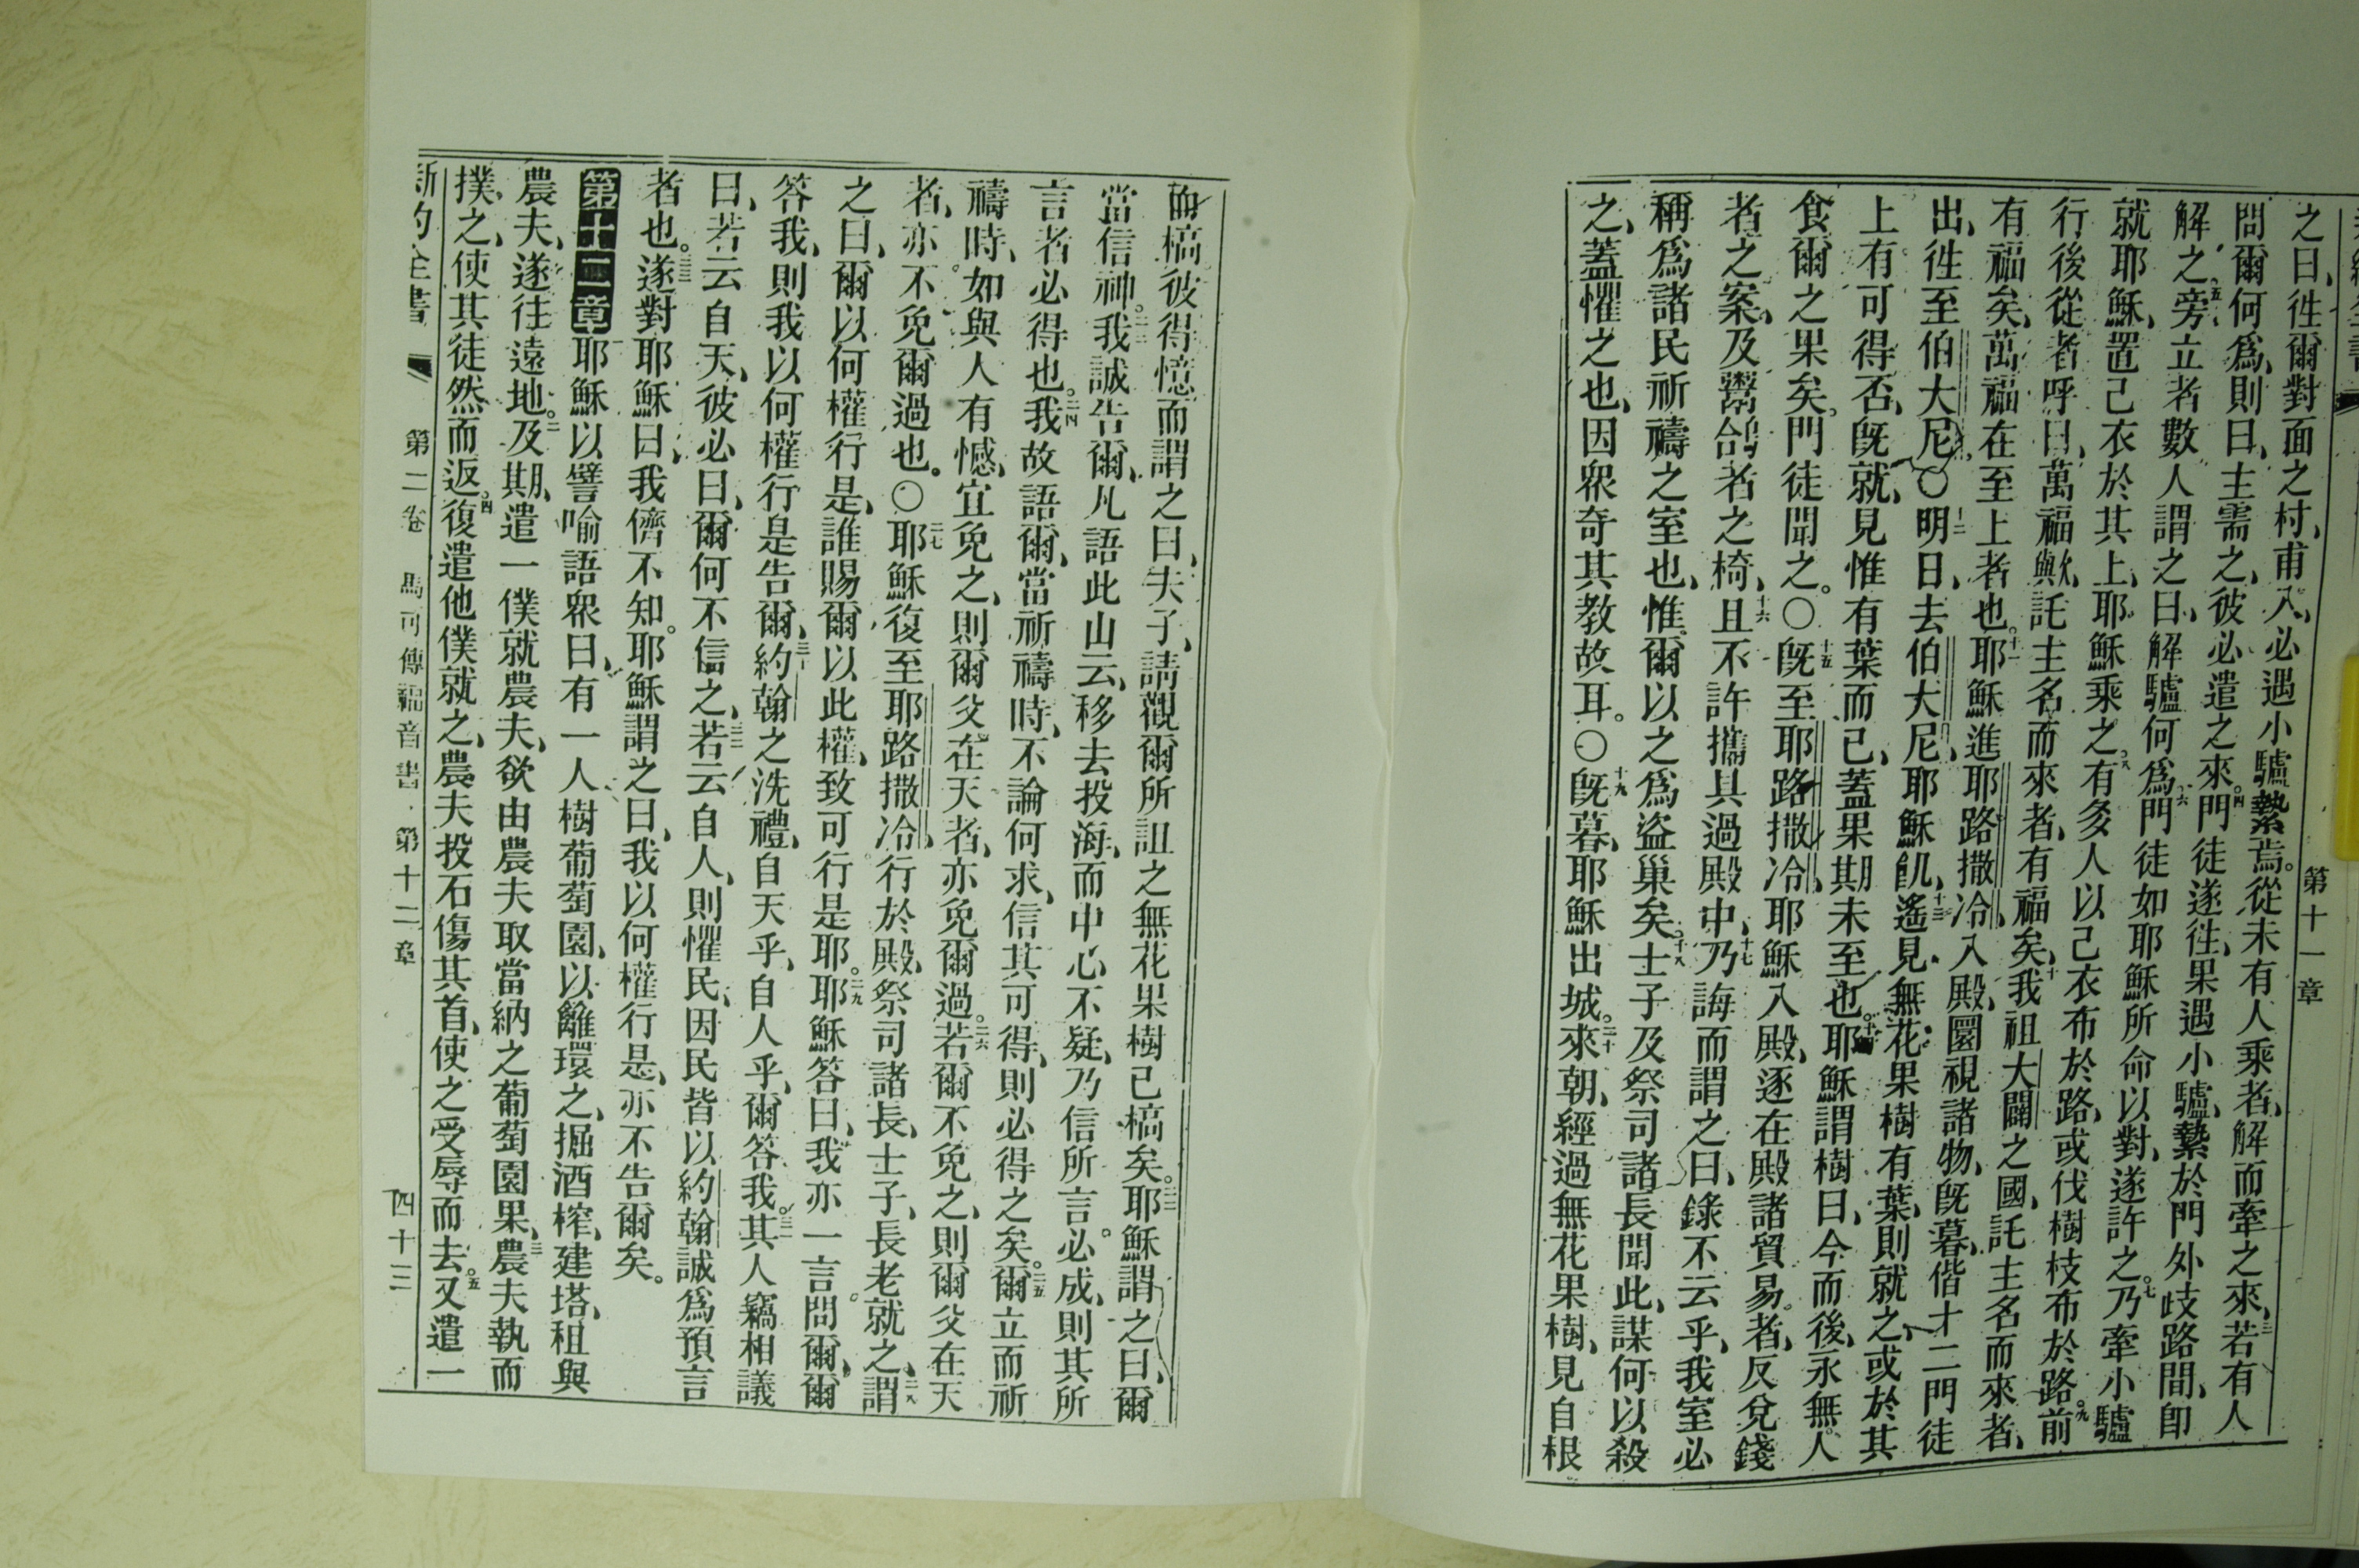 第十一章
之曰、徃爾對面之村、甫入、必遇小驢縶焉。從未有人乘者、解而牽之來、三若有人
問爾何爲、則曰、主需之、彼必遣之來。四門徒遂徃、果遇小驢、縶於門外歧路間、卽
解之。五旁立者數人謂之曰、解驢何爲、六門徒如耶穌所命以對、遂許之。七乃牽小驢
就耶穌、置己衣於其上、耶穌乘之。八有多人以己衣布於路、或伐樹枝布於路。九前
行後從者呼曰、萬福歟、託主名而來者、有福矣、十我祖大闢之國、託主名而來者、
有福矣、萬福在至上者也。十一耶穌進耶路撒冷、入殿、圜視諸物、旣暮、偕十二門徒
出、徃至伯大尼。〇十二明日、去伯大尼、耶穌飢、十三遙見無花果樹有葉、則就之、或於其
上有可得否、旣就、見惟有葉而已、蓋果期未至也。十四耶穌謂樹曰、今而後、永無人
食爾之果矣。門徒聞之。〇十五旣至耶路撒冷、耶穌入殿、逐在殿諸貿易者、反兌錢
者之案、及鬻鴿者之椅、十六且不許攜具過殿中、十七乃誨而謂之曰、錄不云乎、我室必
稱爲諸民祈禱之室也、惟爾以之爲盜巢矣。十八士子及祭司諸長聞此、謀何以殺
之、蓋懼之也、因衆奇其教故耳。〇十九旣暮、耶穌出城。二十來朝、經過無花果樹、見自根
而槁、彼得憶而謂之曰、夫子、請觀爾所詛之無花果樹已槁矣。二二耶穌謂之曰、爾
當信神。二三我誠告爾、凡語此山云、移去投海、而中心不疑、乃信所言必成、則其所
言者必得也。二四我故語爾、當祈禱時、不論何求、信其可得、則必得之矣。二五爾立而祈
禱時、如與人有憾、宜免之、則爾父在天者、亦免爾過。二六若爾不免之、則爾父在天
者、亦不免爾過也。〇二七耶穌復至耶路撒冷、行於殿、祭司諸長、士子、長老就之、二八謂
之曰、爾以何權行是、誰賜爾以此權、致可行是耶。二九耶穌答曰、我亦一言問爾、爾
答我、則我以何權行是告爾、三十約翰之洗禮、自天乎、自人乎、爾答我。三一其人竊相議
曰、若云自天、彼必曰、爾何不信之、三二若云自人、則懼民、因民皆以約翰誠爲預言
者也。三三遂對耶穌曰、我儕不知。耶穌謂之曰、我以何權行是、亦不告爾矣。
第十二章 耶穌以譬喻語衆曰、有一人樹葡萄園、以籬環之、掘酒榨、建塔、租與
農夫、遂往遠地。二及期、遣一僕就農夫、欲由農夫取當納之葡萄園果、三農夫執而
撲之、使其徒然而返。四復遣他僕就之、農夫投石傷其首、使之受辱而去。五又遣一
新約全書 第二卷 馬可傳福音書 第十二章 四十三